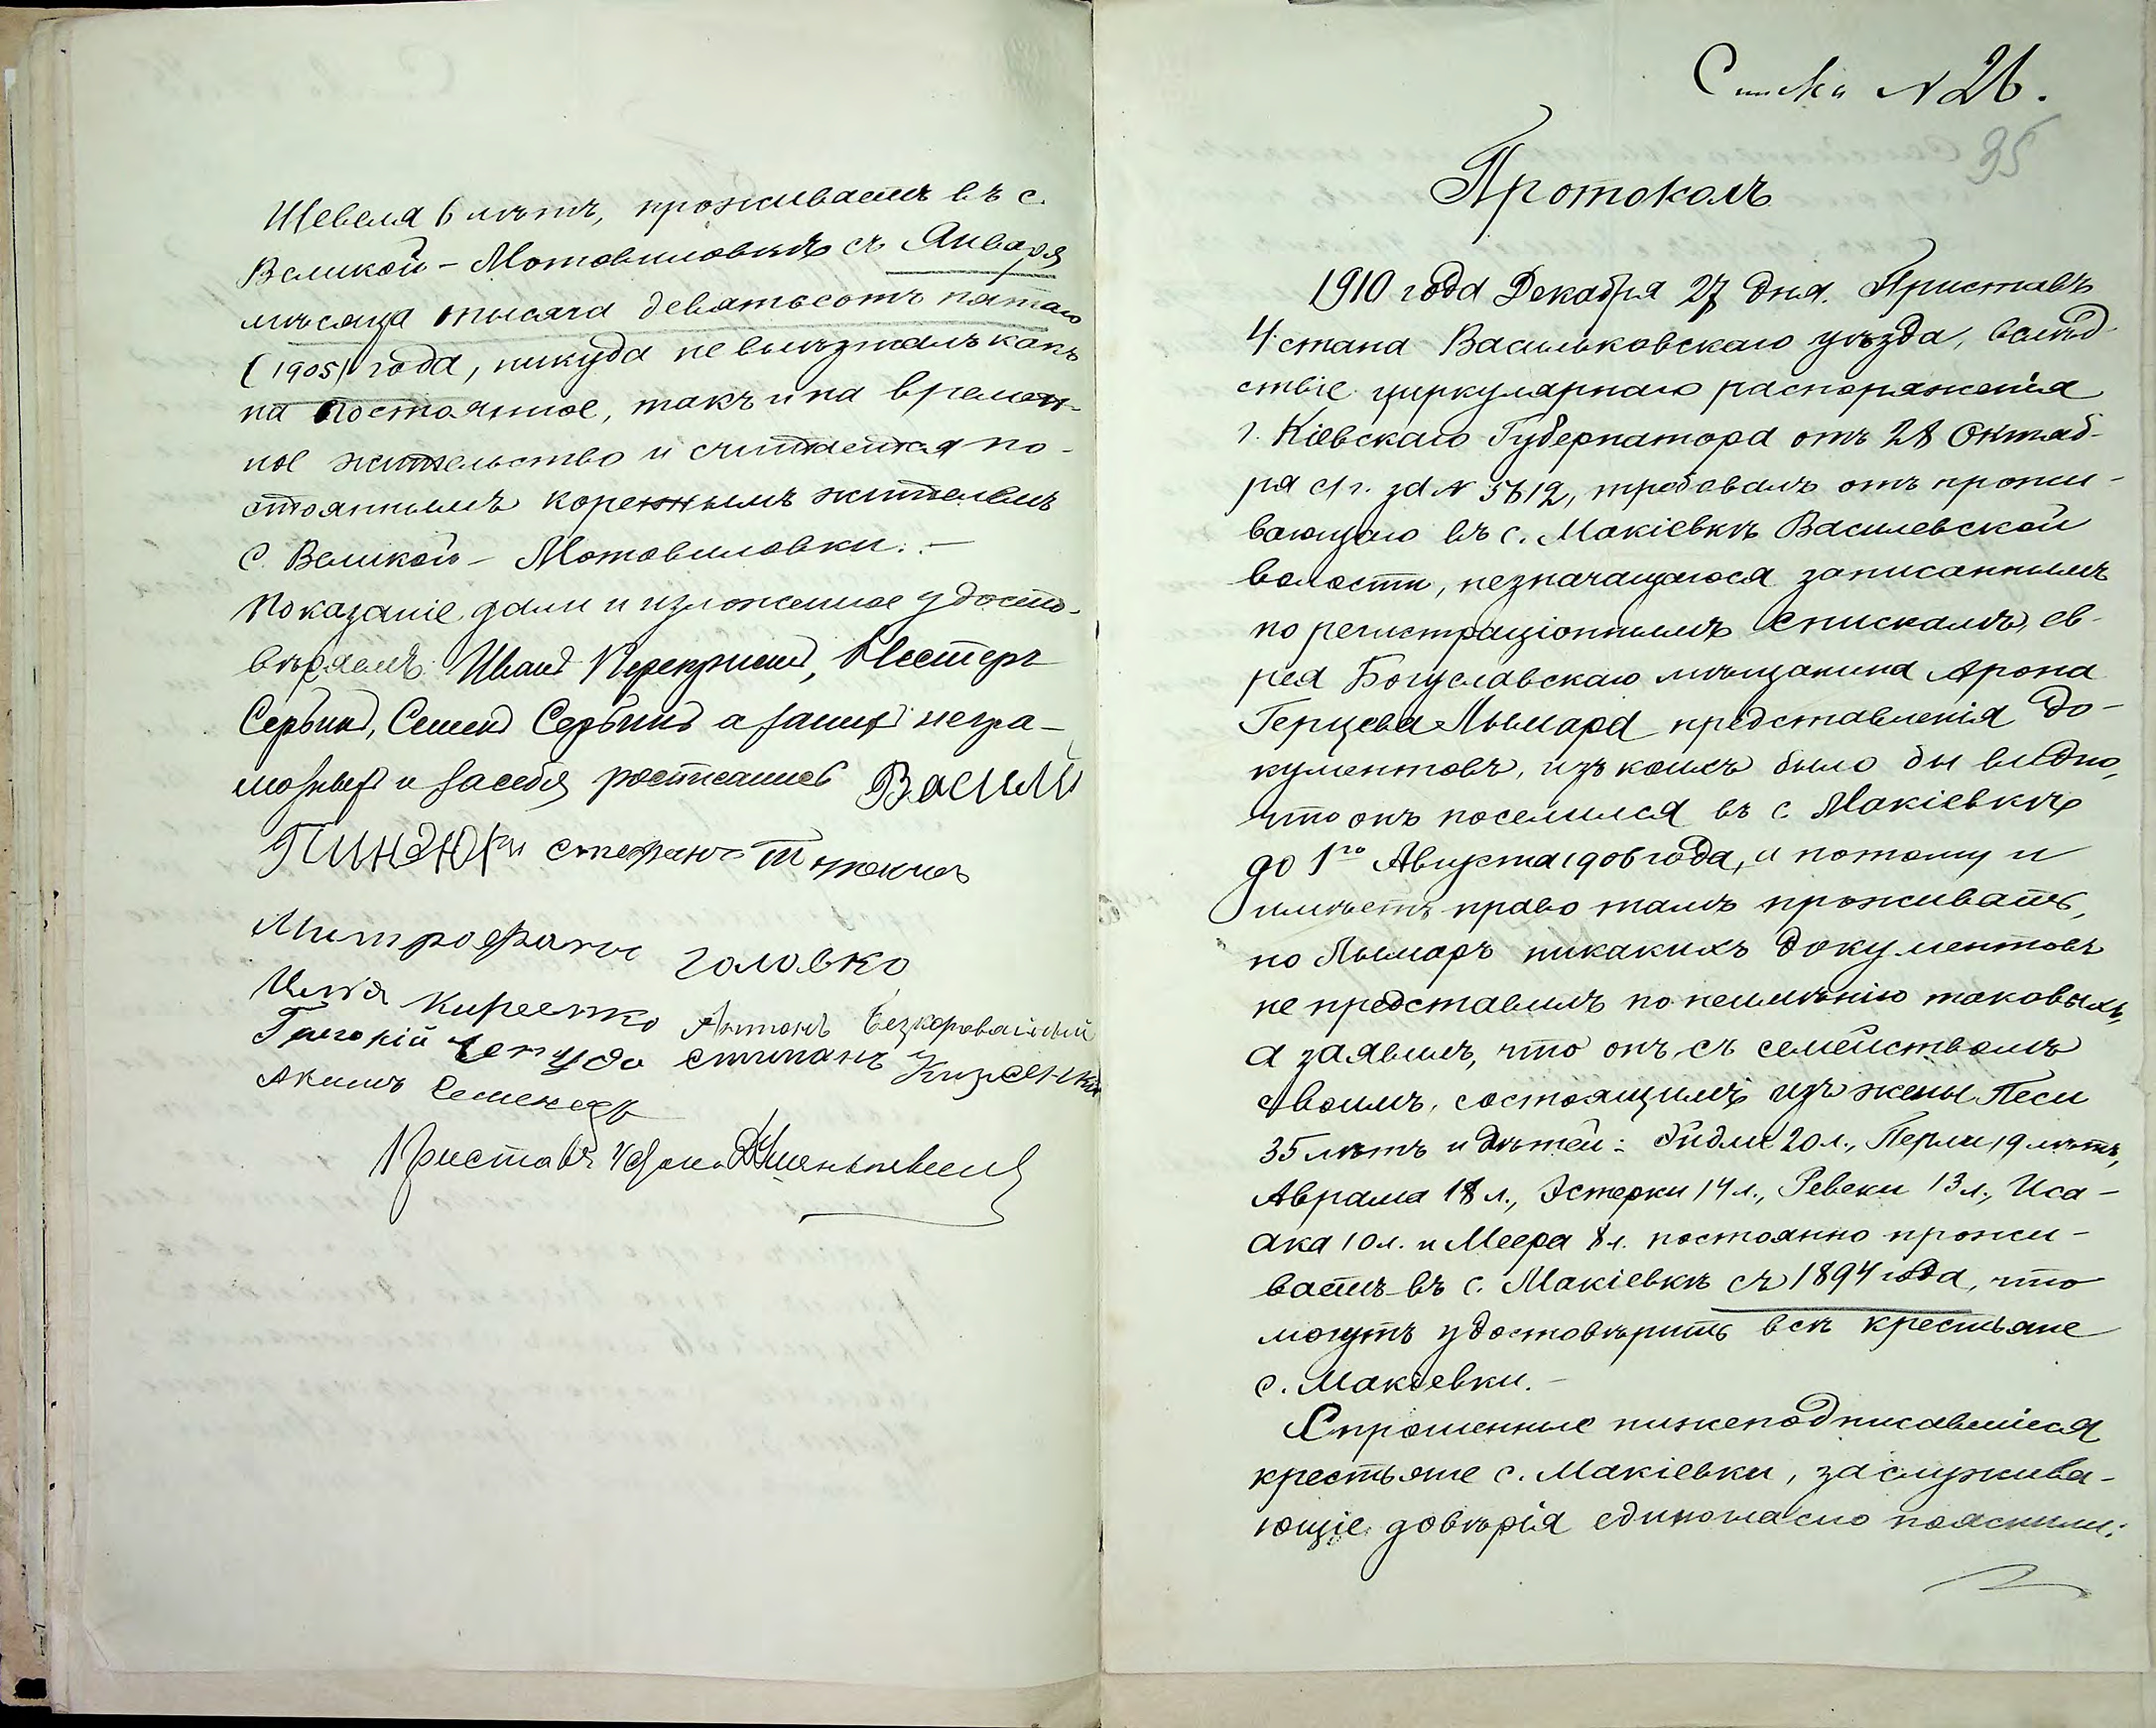 Шевеля 6 лѣтъ, проживаетъ въ с.
Великой-Мотовиловкѣ съ Января
мѣсяца тысяча девятьсотъ пятаго
(1905) года, никуда не выѣзжалъ какъ
на постоянное, такъ и на времен-
ное жительство и считается по-
стояннымъ кореннымъ жителемъ
с. Великой-Мотовиловки.-
Показаніе дали и изложенное удосто-
вѣряемъ: Иванъ Нестеръ
Сербинъ, Семенъ Сербинъ а за нихъ негра-
мотныхъ и за себя росписался Василій
Пиндюри стефанъ
Митрофанъ головко
Илья Киреенко Антонъ Безкоровайный
Григорій степанъ
Акимъ Семенецъ
Приставъ 4 стана
Списка N 26.
35
Протоколъ
1910 года Декабря 27 дня. Приставъ
4 стана Васильковскаго уѣзда, вслѣд
ствіе циркулярнаго распоряженія
г. Кіевскаго Губернатора отъ 28 Октяб-
ря с/г. за N 5612, требовалъ отъ прожи-
вающаго въ с. Макіевкѣ Василевской
волости, незначащагося записаннымъ
по регистраціоннымъ спискамъ, ев-
рея Богуславскаго мѣщанина Арона
Герцева Лымара представленія до-
кументовъ, изъ коихъ было бы видно,
что онъ поселился въ с. Макіевкѣ
до 1го Августа 1906 года, и потому и
имѣетъ право тамъ проживать,
но Лымаръ никакихъ документовъ
не представилъ по неимѣнію таковыхъ,
а заявилъ, что онъ съ семействомъ
своимъ, состоящимъ изъ жены Песи
35 лѣтъ и дѣтей: Эйдли 20 л., Перли 19 лѣтъ,
Аврама 18 л., Эстерки 14 л., Ревеки 13 л., Иса-
ака 10 л. и Меера 8 л. постоянно прожи-
ваетъ въ с. Макіевкѣ съ 1894 года, что
могутъ удостовѣрить всѣ крестьяне
с. Макіевки.-
Спрошенные нижеподписавшіеся
крестьяне с. Макіевки, заслужива-
ющіе довѣрія единогласно пояснили: